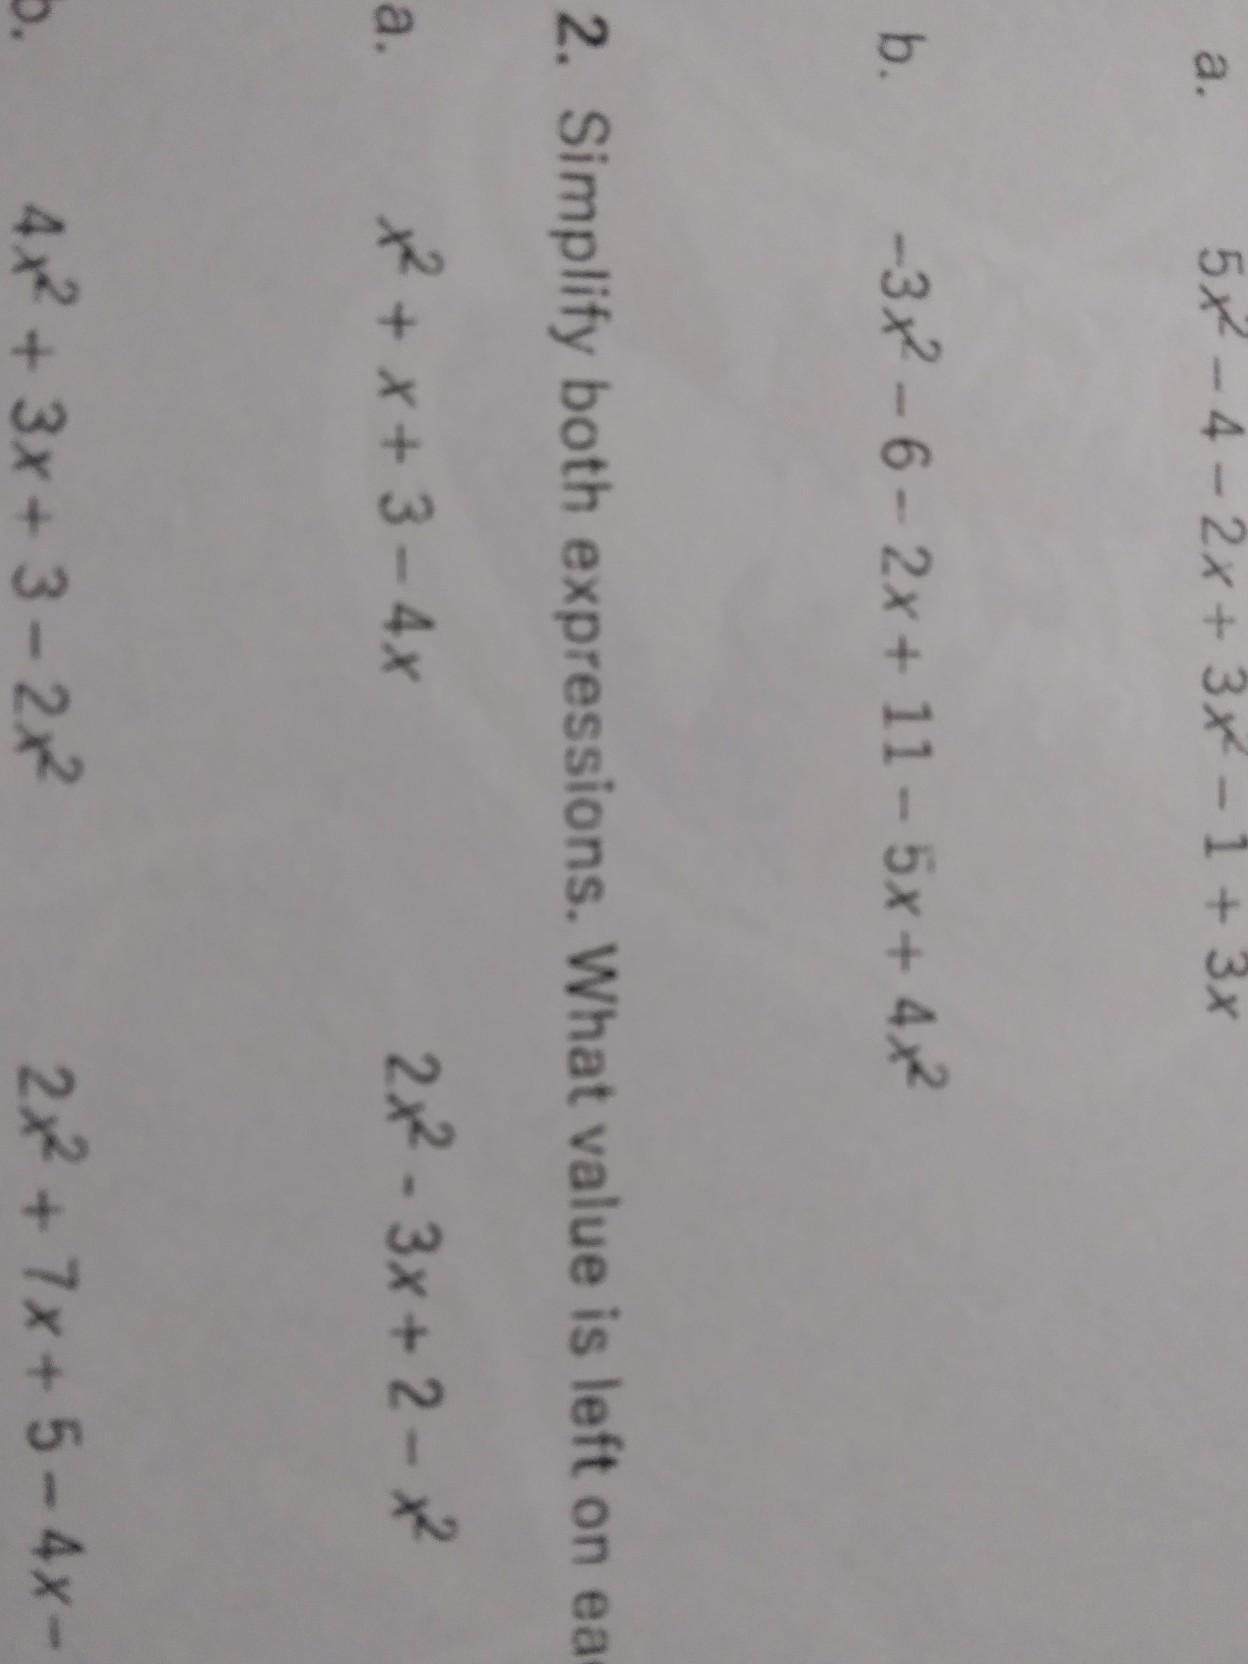 a. 5x² – 4 – 2x + 3x² – 1 + 3x
b. –3x² – 6 – 2x + 11 – 5x + 4x²
2. Simplify both expressions. What value is left on
a. x² + x + 3 – 4x 2x² - 3x + 2 – x²
b. 4x² + 3x + 3 – 2x² 2x² + 7x + 5 – 4x –